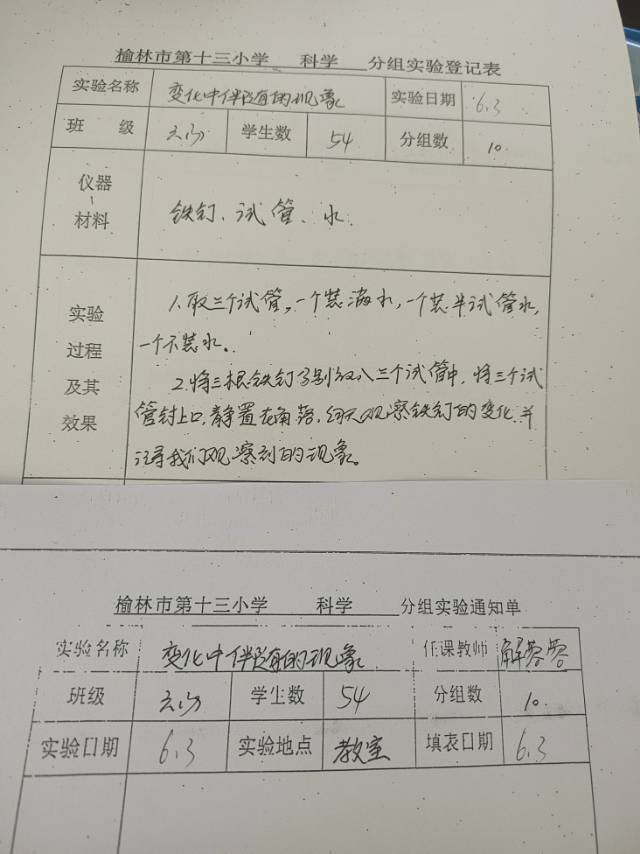 榆林市第十三小学 科学 分组实验登记表
实验名称 变化中伴随的现象 实验日期 6.3
班 级 学生数 54 分组数 10
仪器、材料 铁钉、试管、水
实验过程及其效果
1.取三个试管,一个装满水,一个装半试管水,
一个不装水。
2.将三根铁钉分别放入三个试管中,将三个试
管封上口,静置在角落,每天观察铁钉的变化,并
记录我们观察到的现象。
榆林市第十三小学 科学 分组实验通知单
实验名称 变化中伴随的现象 任课教师 解蓉蓉
班级 学生数 54 分组数 10
实验日期 6.3 实验地点 教室 填表日期 6.3